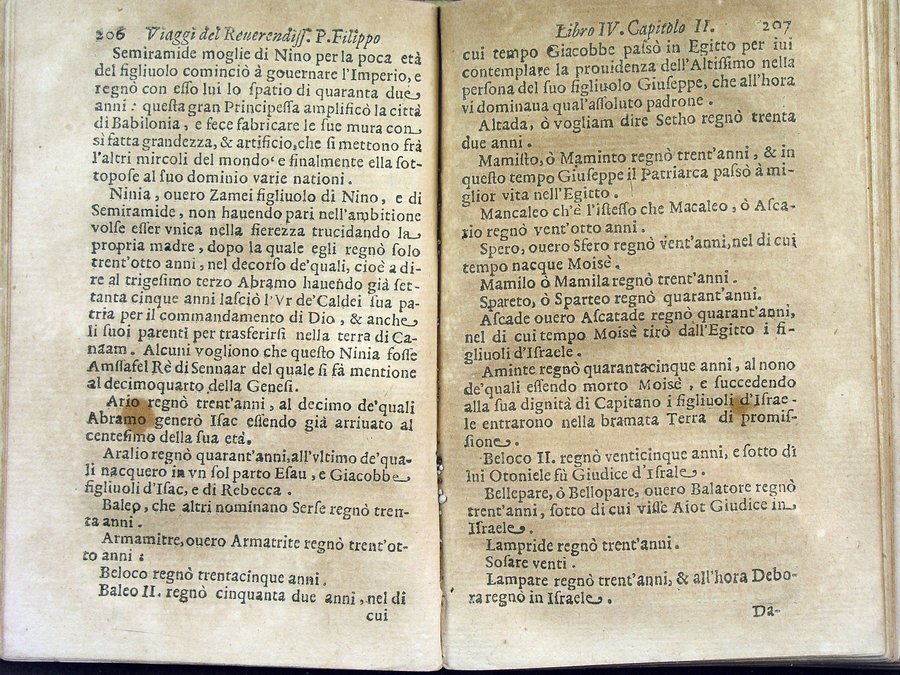 206 Viaggi del Reuerendiſſ. P. Filippo
Semiramide moglie di Nino per la poca età
del figliuolo cominciò à gouernare l'Imperio, e
regnò con eſſo lui lo ſpatio di quaranta due
anni : queſta gran Principeſſa amplificò la città
di Babilonia, e fece fabricare le ſue mura con
sì fatta grandezza, & artificio, che ſi mettono frà
l'altri mircoli del mondo e finalmente ella ſot-
topoſe al ſuo dominio varie nationi.
Ninia, ouero Zamei figliuolo di Nino, e di
Semiramide, non hauendo pari nell'ambitione
volſe eſſer vnica nella fierezza trucidando la
propria madre, dopo la quale egli regnò ſolo
trent'otto anni, nel decorſo de'quali, cioè a di-
re al trigeſimo terzo Abramo hauendo già ſet-
tanta cinque anni laſciò l'Vr de'Caldei ſua pa-
tria per il commandamento di Dio, & anche
li ſuoi parenti per trasferirſi nella terra di Ca-
naam. Alcuni vogliono che queſto Ninia foſſe
Amſſafel Rè di Sennaar del quale ſi fà mentione
al decimoquarto della Geneſi.
Ario regnò trent'anni, al decimo de'quali
Abramo generò Iſac eſſendo già arriuato al
centeſimo della ſua età.
Aralio regnò quarant'anni, all'vltimo de'qua-
li nacquero in vn ſol parto Eſau, e Giacobbe
figliuoli d'Iſac, e di Rebecca.
Baleo, che altri nominano Serſe regnò tren-
ta anni.
Armamitre, ouero Armatrite regnò trent'ot-
to anni :
Beloco regnò trentacinque anni.
Baleo II. regnò cinquanta due anni, nel di
cui
Libro IV. Capitolo II. 207
cui tempo Giacobbe paſsò in Egitto per iui
contemplare la prouidenza dell'Altiſſimo nella
perſona del ſuo figliuolo Giuſeppe, che all'hora
vi dominaua qual'aſſoluto padrone.
Altada, ò vogliam dire Setho regnò trenta
due anni.
Mamiſto, ò Maminto regnò trent'anni, & in
queſto tempo Giuſeppe il Patriarca paſsò à mi-
glior vita nell'Egitto.
Mancaleo ch'è l'iſteſſo che Macaleo, ò Aſca-
rio regnò vent'otto anni.
Spero, ouero Sfero regnò vent'anni, nel di cui
tempo nacque Moisè.
Mamilo ò Mamila regnò trent'anni.
Spareto, ò Sparteo regnò quarant'anni.
Aſcade ouero Aſcatade regnò quarant'anni,
nel di cui tempo Moisè tirò dall'Egitto i fi-
gliuoli d'Iſraele.
Aminte regnò quarantacinque anni, al nono
de'quali eſſendo morto Moisè, e ſuccedendo
alla ſua dignità di Capitano i figliuoli d'Iſrae-
le entrarono nella bramata Terra di promiſ-
ſione.
Beloco II. regnò venticinque anni, e ſotto di
lui Otoniele fù Giudice d'Iſrale.
Bellepare, ò Bellopare, ouero Balatore regnò
trent'anni, ſotto di cui viſſe Aiot Giudice in
Iſraele.
Lampride regnò trent'anni.
Soſare venti.
Lampare regnò trent'anni, & all'hora Debo-
ra regnò in Iſraele.
Da-